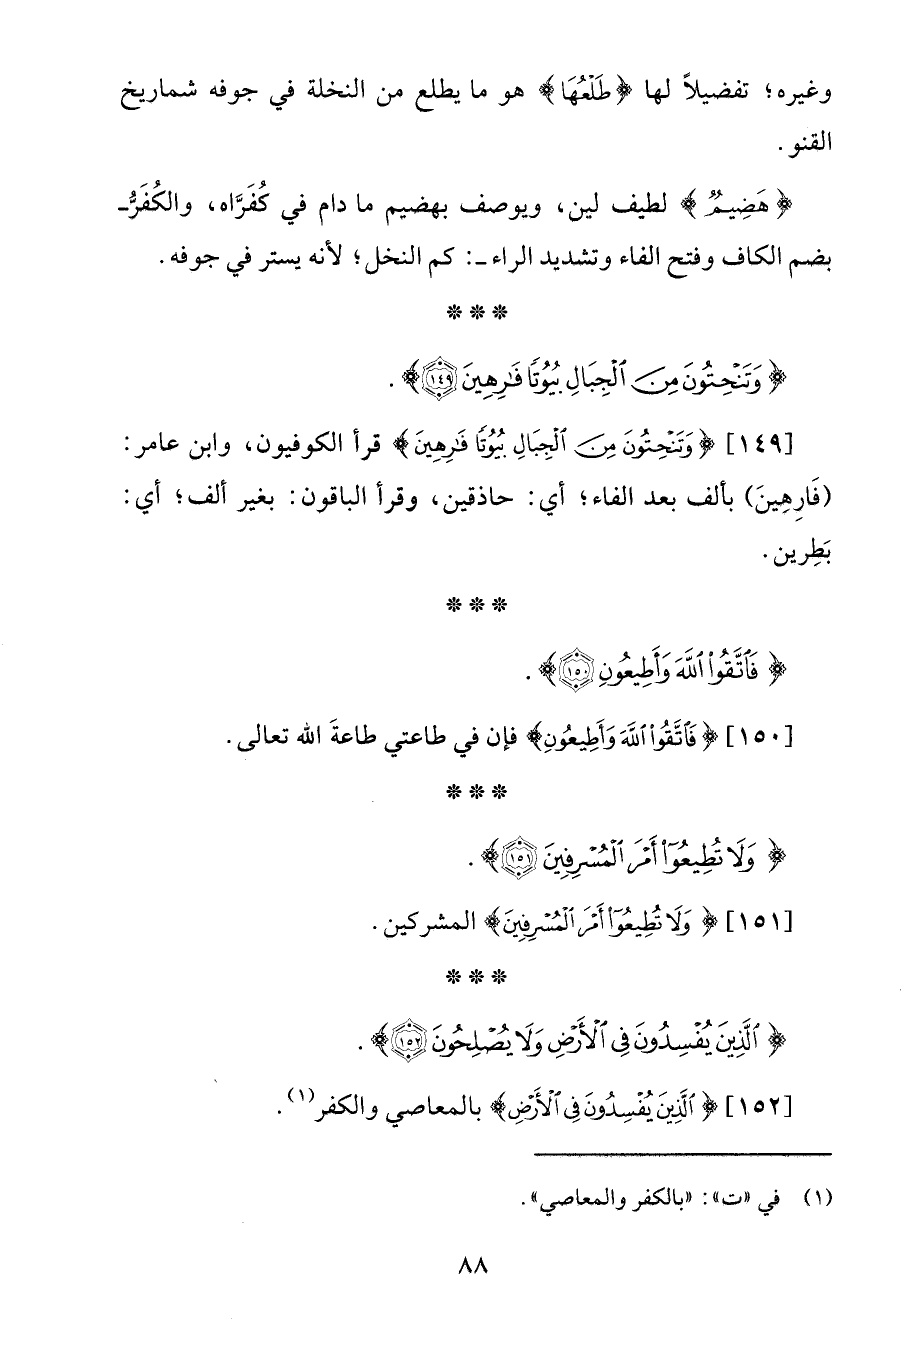 وغيره؛ تفضيلاً لها ﴿طَلْعُهَا﴾ هو ما يطلع من النخلة في جوفه شماريخ
القنو.
﴿هَضِيمٌ﴾ لطيف لين، ويوصف بهضيم ما دام في كُفَرَّاه، والكُفَرُّـ
بضم الكاف وفتح الفاء وتشديد الراء ـ: كم النخل؛ لأنه يستر في جوفه.
* * *
﴿وَتَنْحِتُونَ مِنَ ٱلْجِبَالِ بُيُوتًا فَٰرِهِينَ ١٤٩﴾.
[١٤٩] ﴿وَتَنْحِتُونَ مِنَ ٱلْجِبَالِ بُيُوتًا فَٰرِهِينَ﴾ قرأ الكوفيون، وابن عامر:
(فَارِهِينَ) بألف بعد الفاء؛ أي: حاذقين، وقرأ الباقون: بغير ألف؛ أي:
بَطِرين.
* * *
﴿فَٱتَّقُوا۟ ٱللَّهَ وَأَطِيعُونِ ١٥٠﴾.
[١٥٠] ﴿فَٱتَّقُوا۟ ٱللَّهَ وَأَطِيعُونِ﴾ فإن في طاعتي طاعةَ الله تعالى.
* * *
﴿وَلَا تُطِيعُوٓا۟ أَمْرَ ٱلْمُسْرِفِينَ ١٥١﴾.
[١٥١] ﴿وَلَا تُطِيعُوٓا۟ أَمْرَ ٱلْمُسْرِفِينَ﴾ المشركين.
* * *
﴿ٱلَّذِينَ يُفْسِدُونَ فِى ٱلْأَرْضِ وَلَا يُصْلِحُونَ ١٥٢﴾.
[١٥٢] ﴿ٱلَّذِينَ يُفْسِدُونَ فِى ٱلْأَرْضِ﴾ بالمعاصي والكفر(١).
(١) في «ت»: «بالكفر والمعاصي».
٨٨